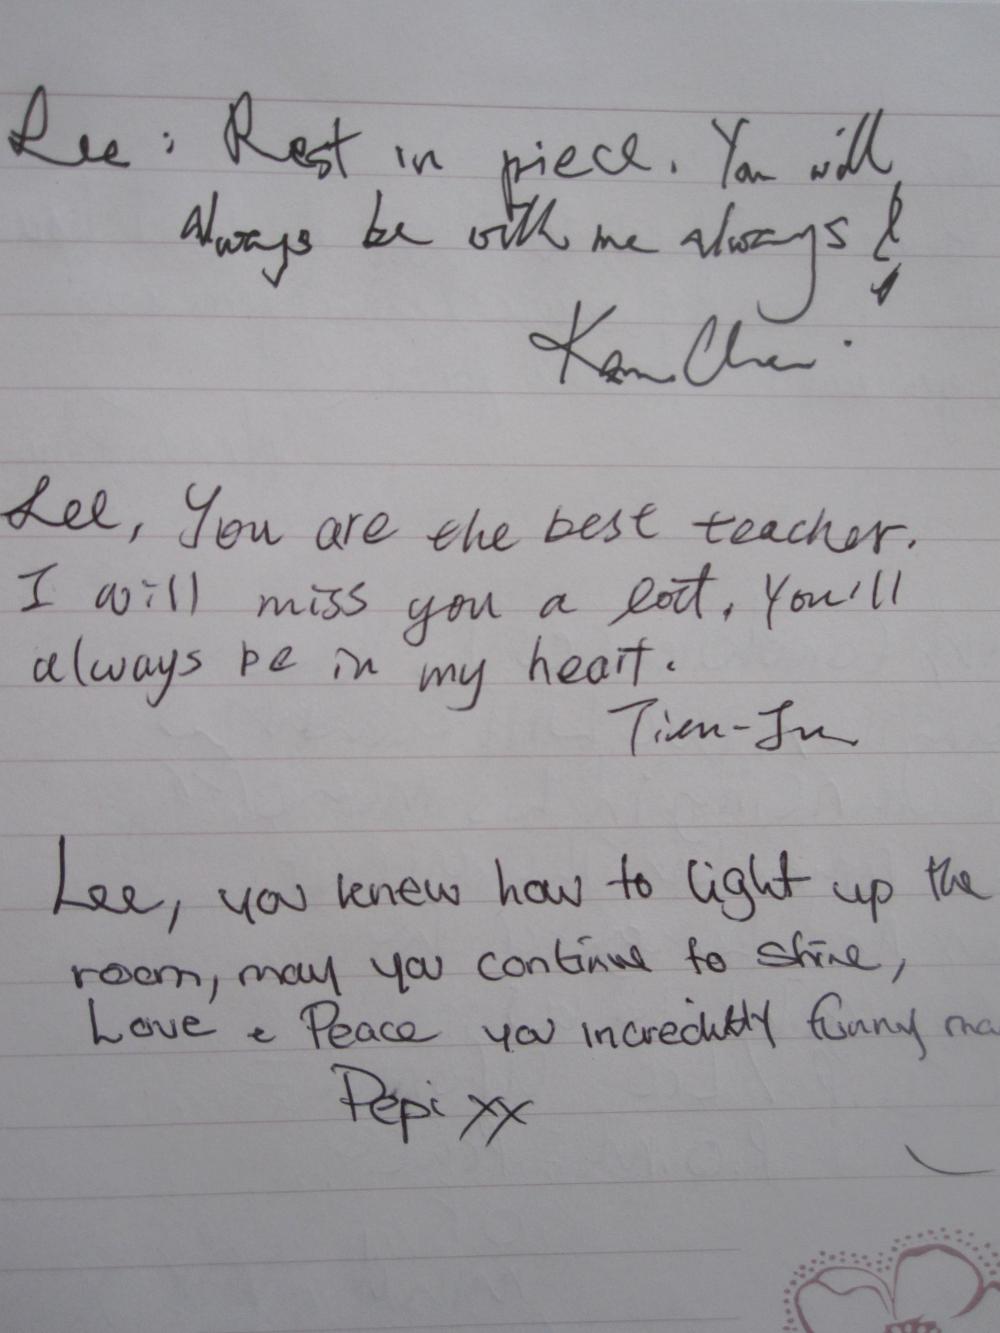 Lee : Rest in piece. You will
always be with me always !
Lee, You are the best teacher.
I will miss you a lot. You'll
always be in my heart.
Lee, you knew how to light up the
room, may you continue to shine,
Love & Peace you incredibly funny ma
Pepi xx